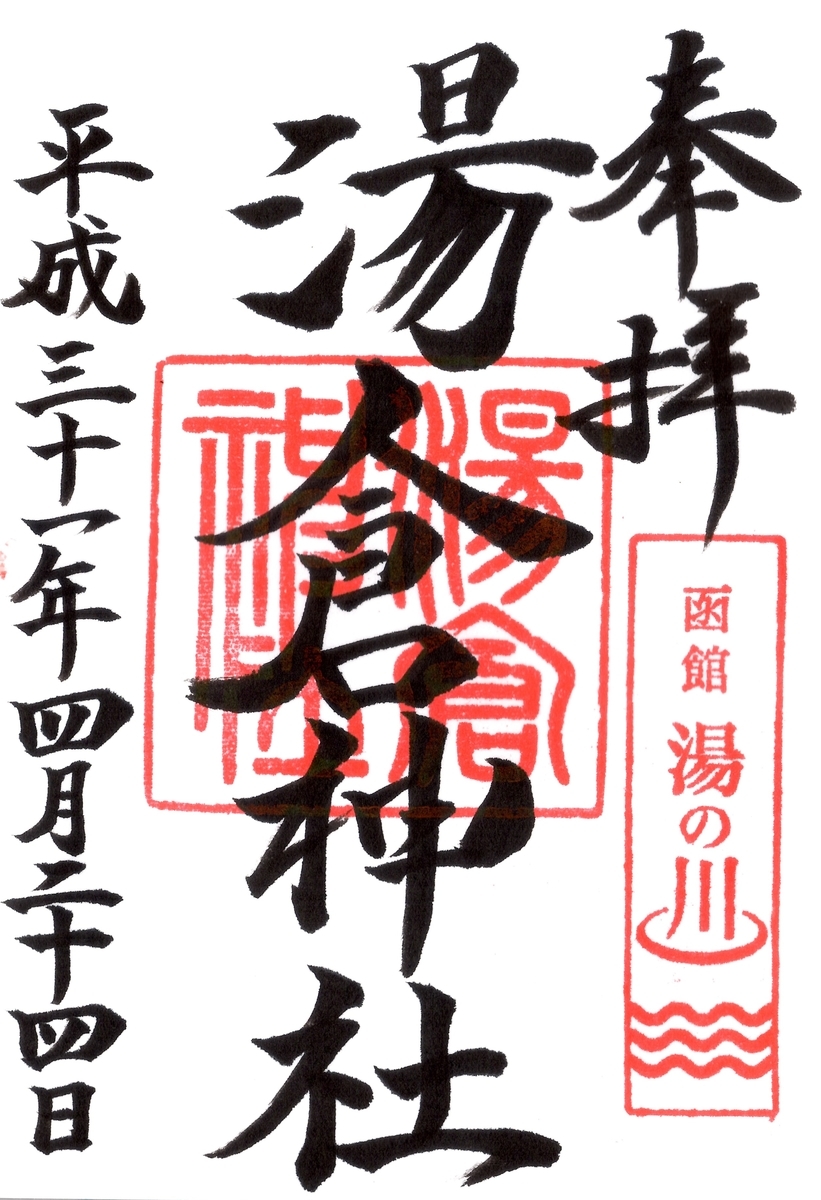 奉拝
函館 湯の川
湯倉神社
湯倉神社
平成三十一年四月二十四日